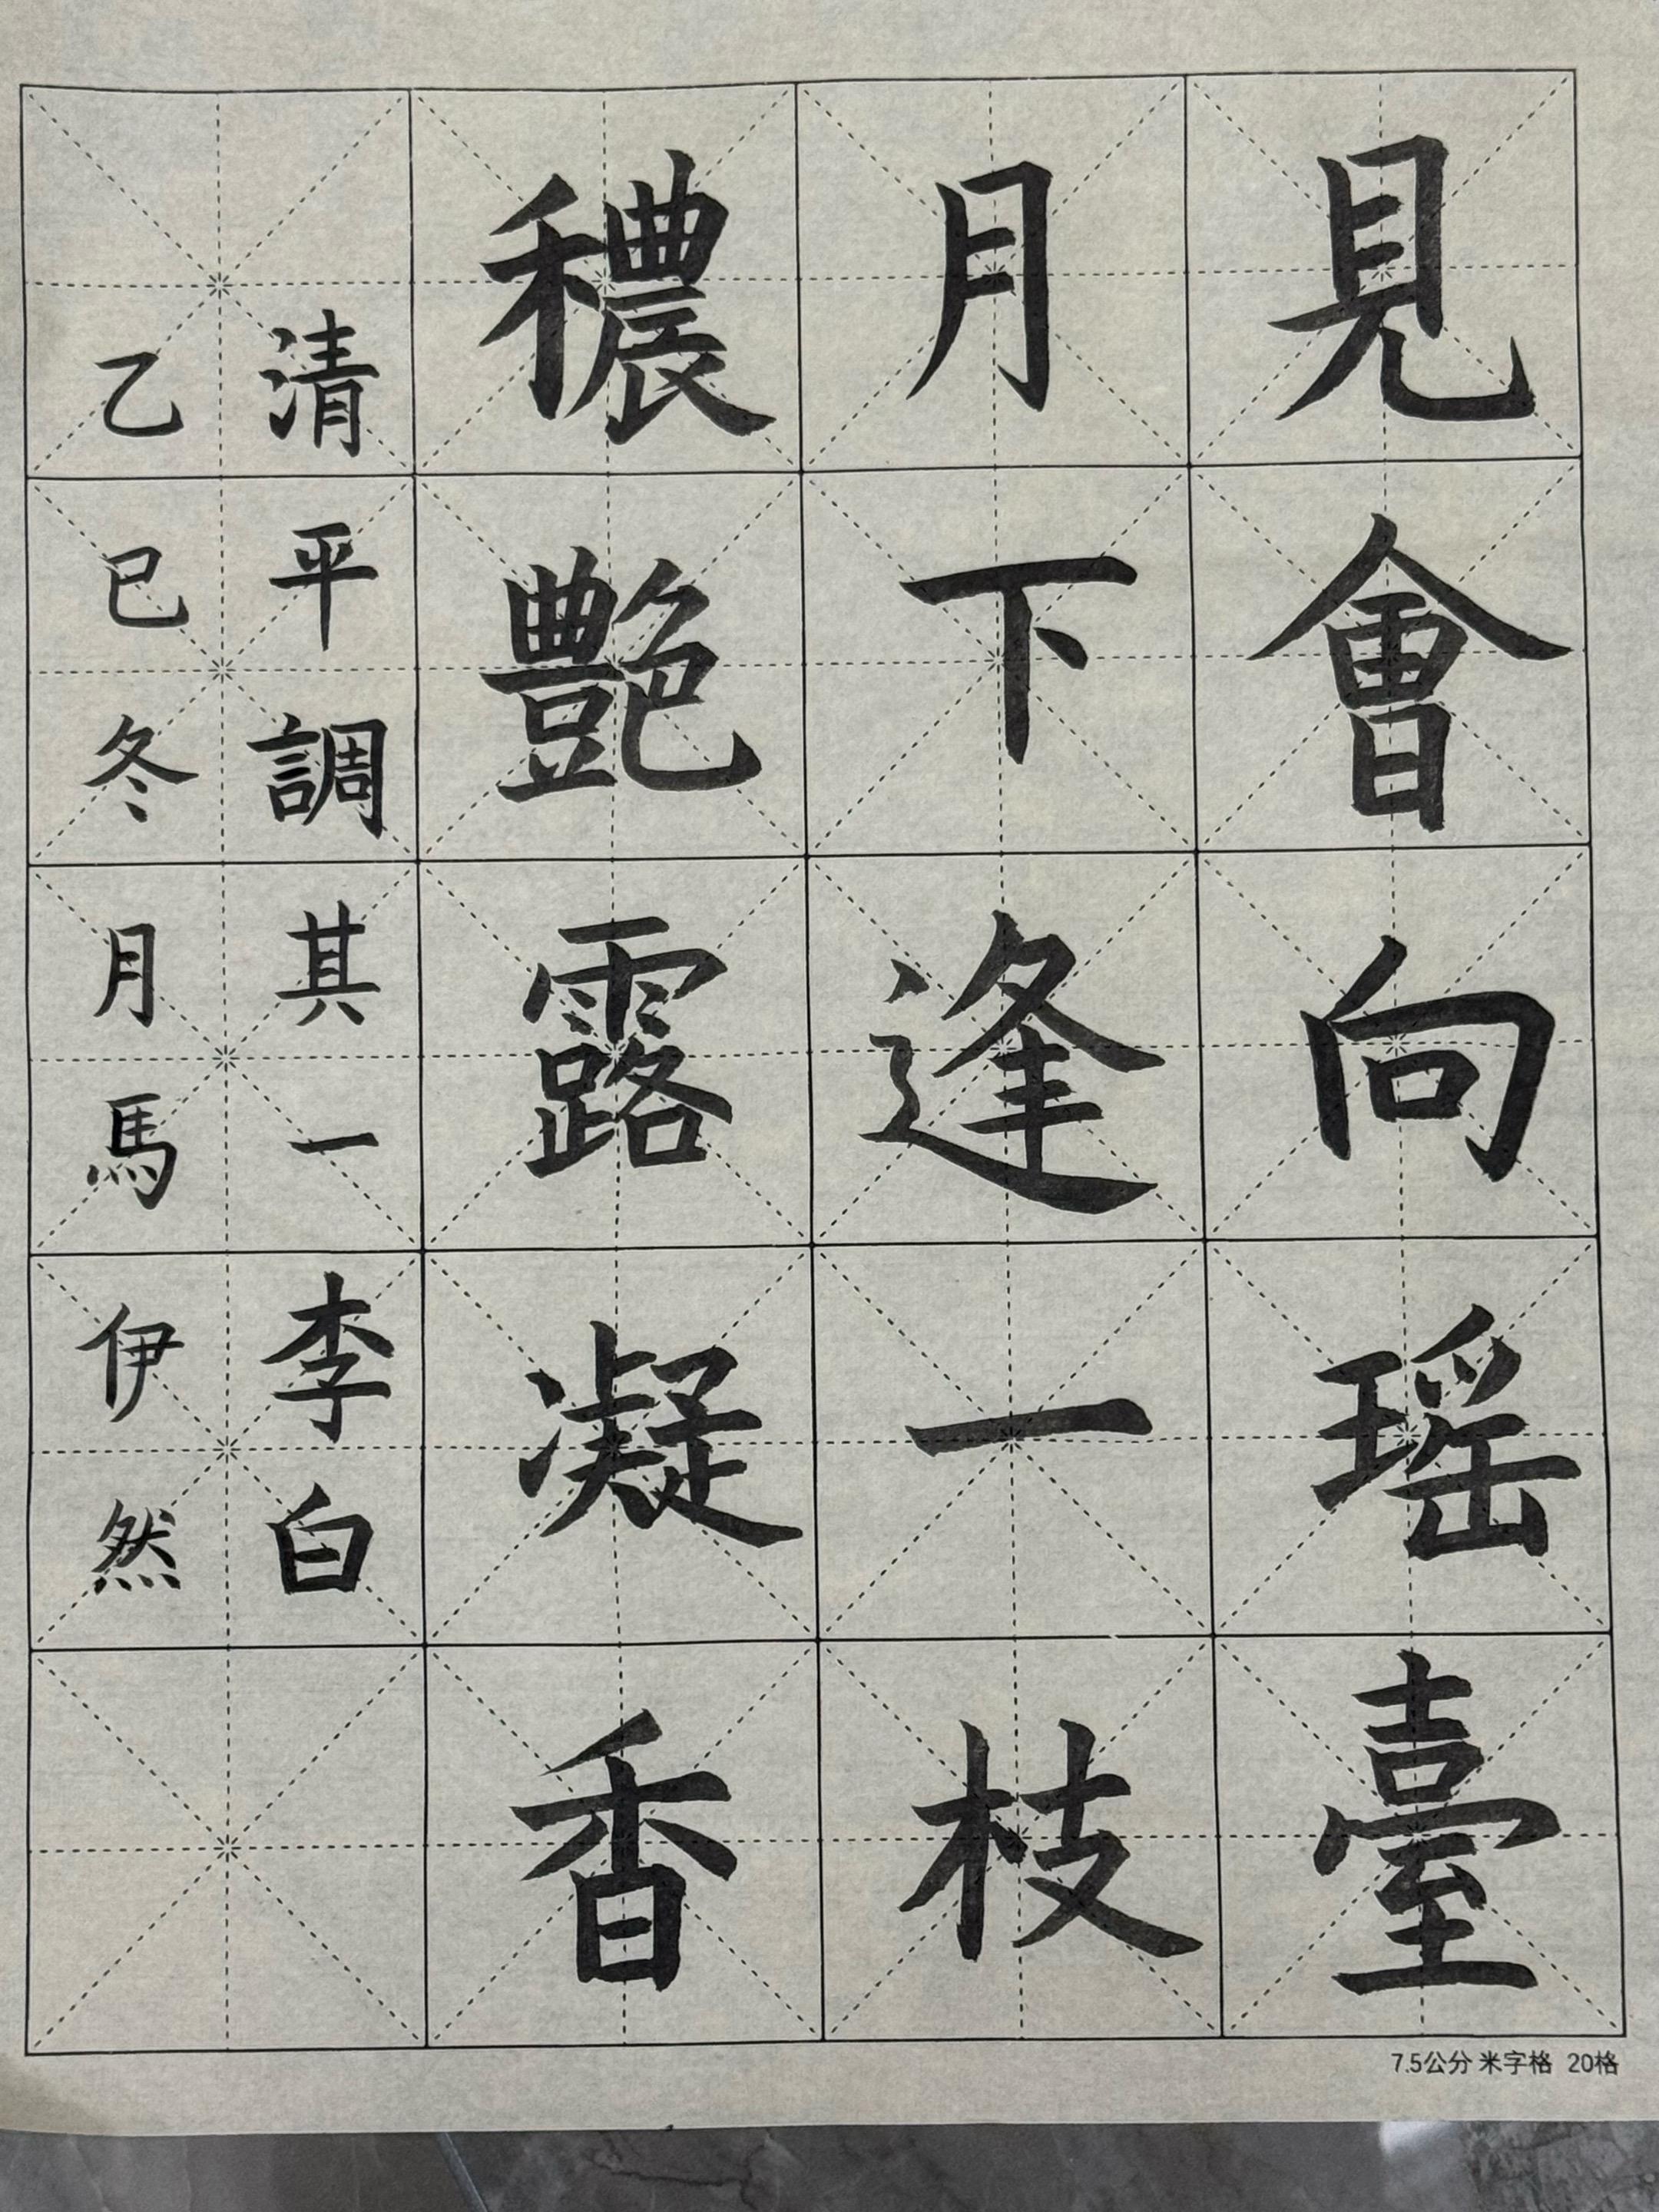 見會向瑶臺
月下逢一枝
穠艷露凝香
清平調其一李白
乙巳冬月馬伊然
7.5公分 米字格 20格